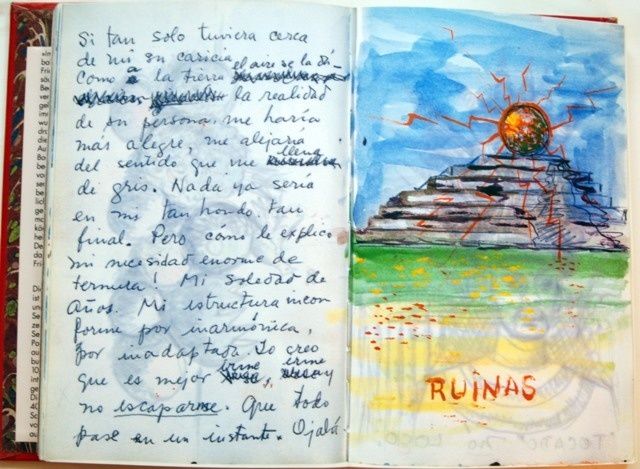 Si tan solo tuviera cerca
de mi su caricia
Como a la tierra el aire se la dá-
la realidad
de su persona, me haría
más alegre, me alejaría
del sentido que me llena
de gris. Nada ya sería
en mi tan hondo. tan
final. Pero cómo le explico
mi necesidad enorme de
ternura! Mi soledad de
años. Mi estructura incon
forme por inarmónica,
por inadaptada. Yo creo
que es mejor irme, irme y
no escaparme. Que todo
pase en un instante. Ojalá
RUINAS